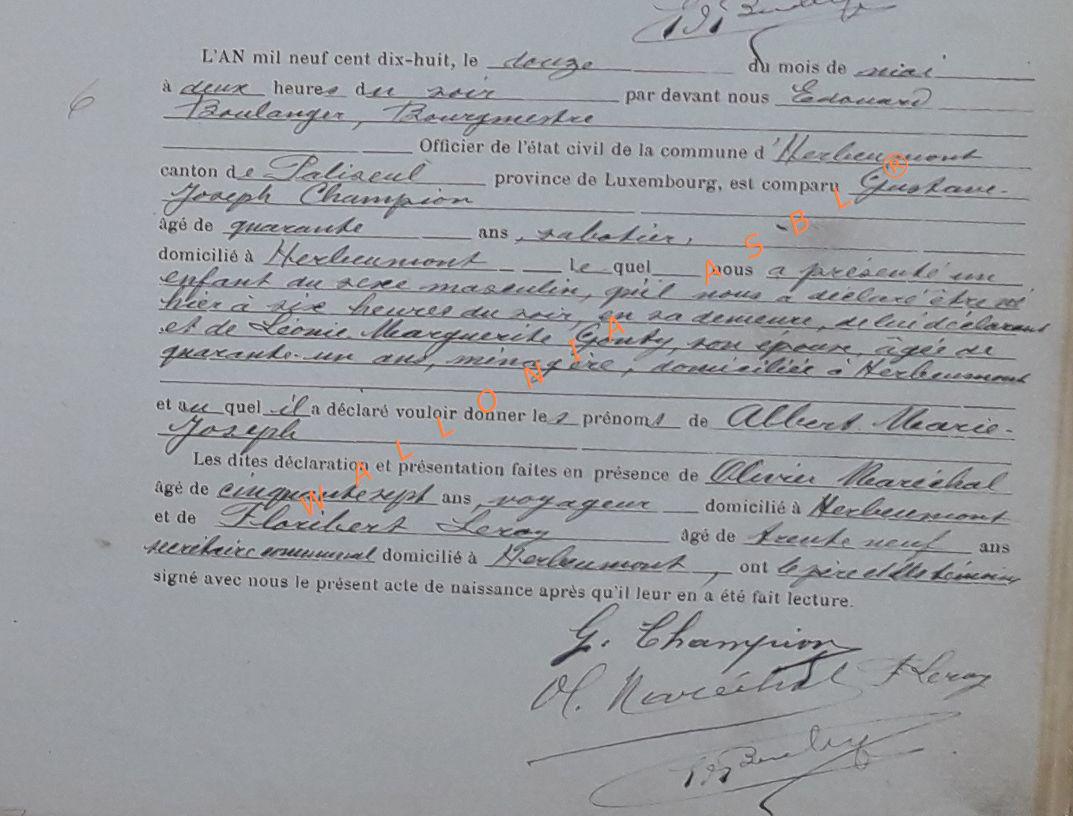 L'AN mil neuf cent dix-huit, le douze du mois de mai
6
à deux heures du soir par devant nous Edouard
Boulanger, Bourgmestre
Officier de l'état civil de la commune d'Herbeumont
canton de Paliseul province de Luxembourg, est comparu Gustave-
Joseph Champion
âgé de quarante ans, sabotier,
domicilié à Herbeumont le quel nous a présenté un
enfant du sexe masculin, qu'il nous a déclaré être né
hier à six heures du soir, en sa demeure, de lui déclarant
et de Léonie Marguerite Genty, son épouse, âgée de
quarante-un ans, ménagère, domiciliée à Herbeumont
et au quel il a déclaré vouloir donner les prénoms de Albert Marie-
Joseph
Les dites déclaration et présentation faites en présence de Olivier Maréchal
âgé de cinquante sept ans, voyageur domicilié à Herbeumont
et de Floribert Leroy âgé de trente neuf ans
secrétaire communal domicilié à Herbeumont, ont le père et les témoins
signé avec nous le présent acte de naissance après qu'il leur en a été fait lecture.
G. Champion
Ol. Maréchal FLeroy
WALLONIA ASBL ®